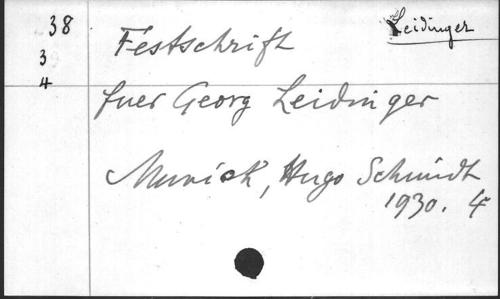 38
3
4
Leidinger
Festschrift
fuer Georg Leidinger
Munich, Hugo Schmidt
1930. 4